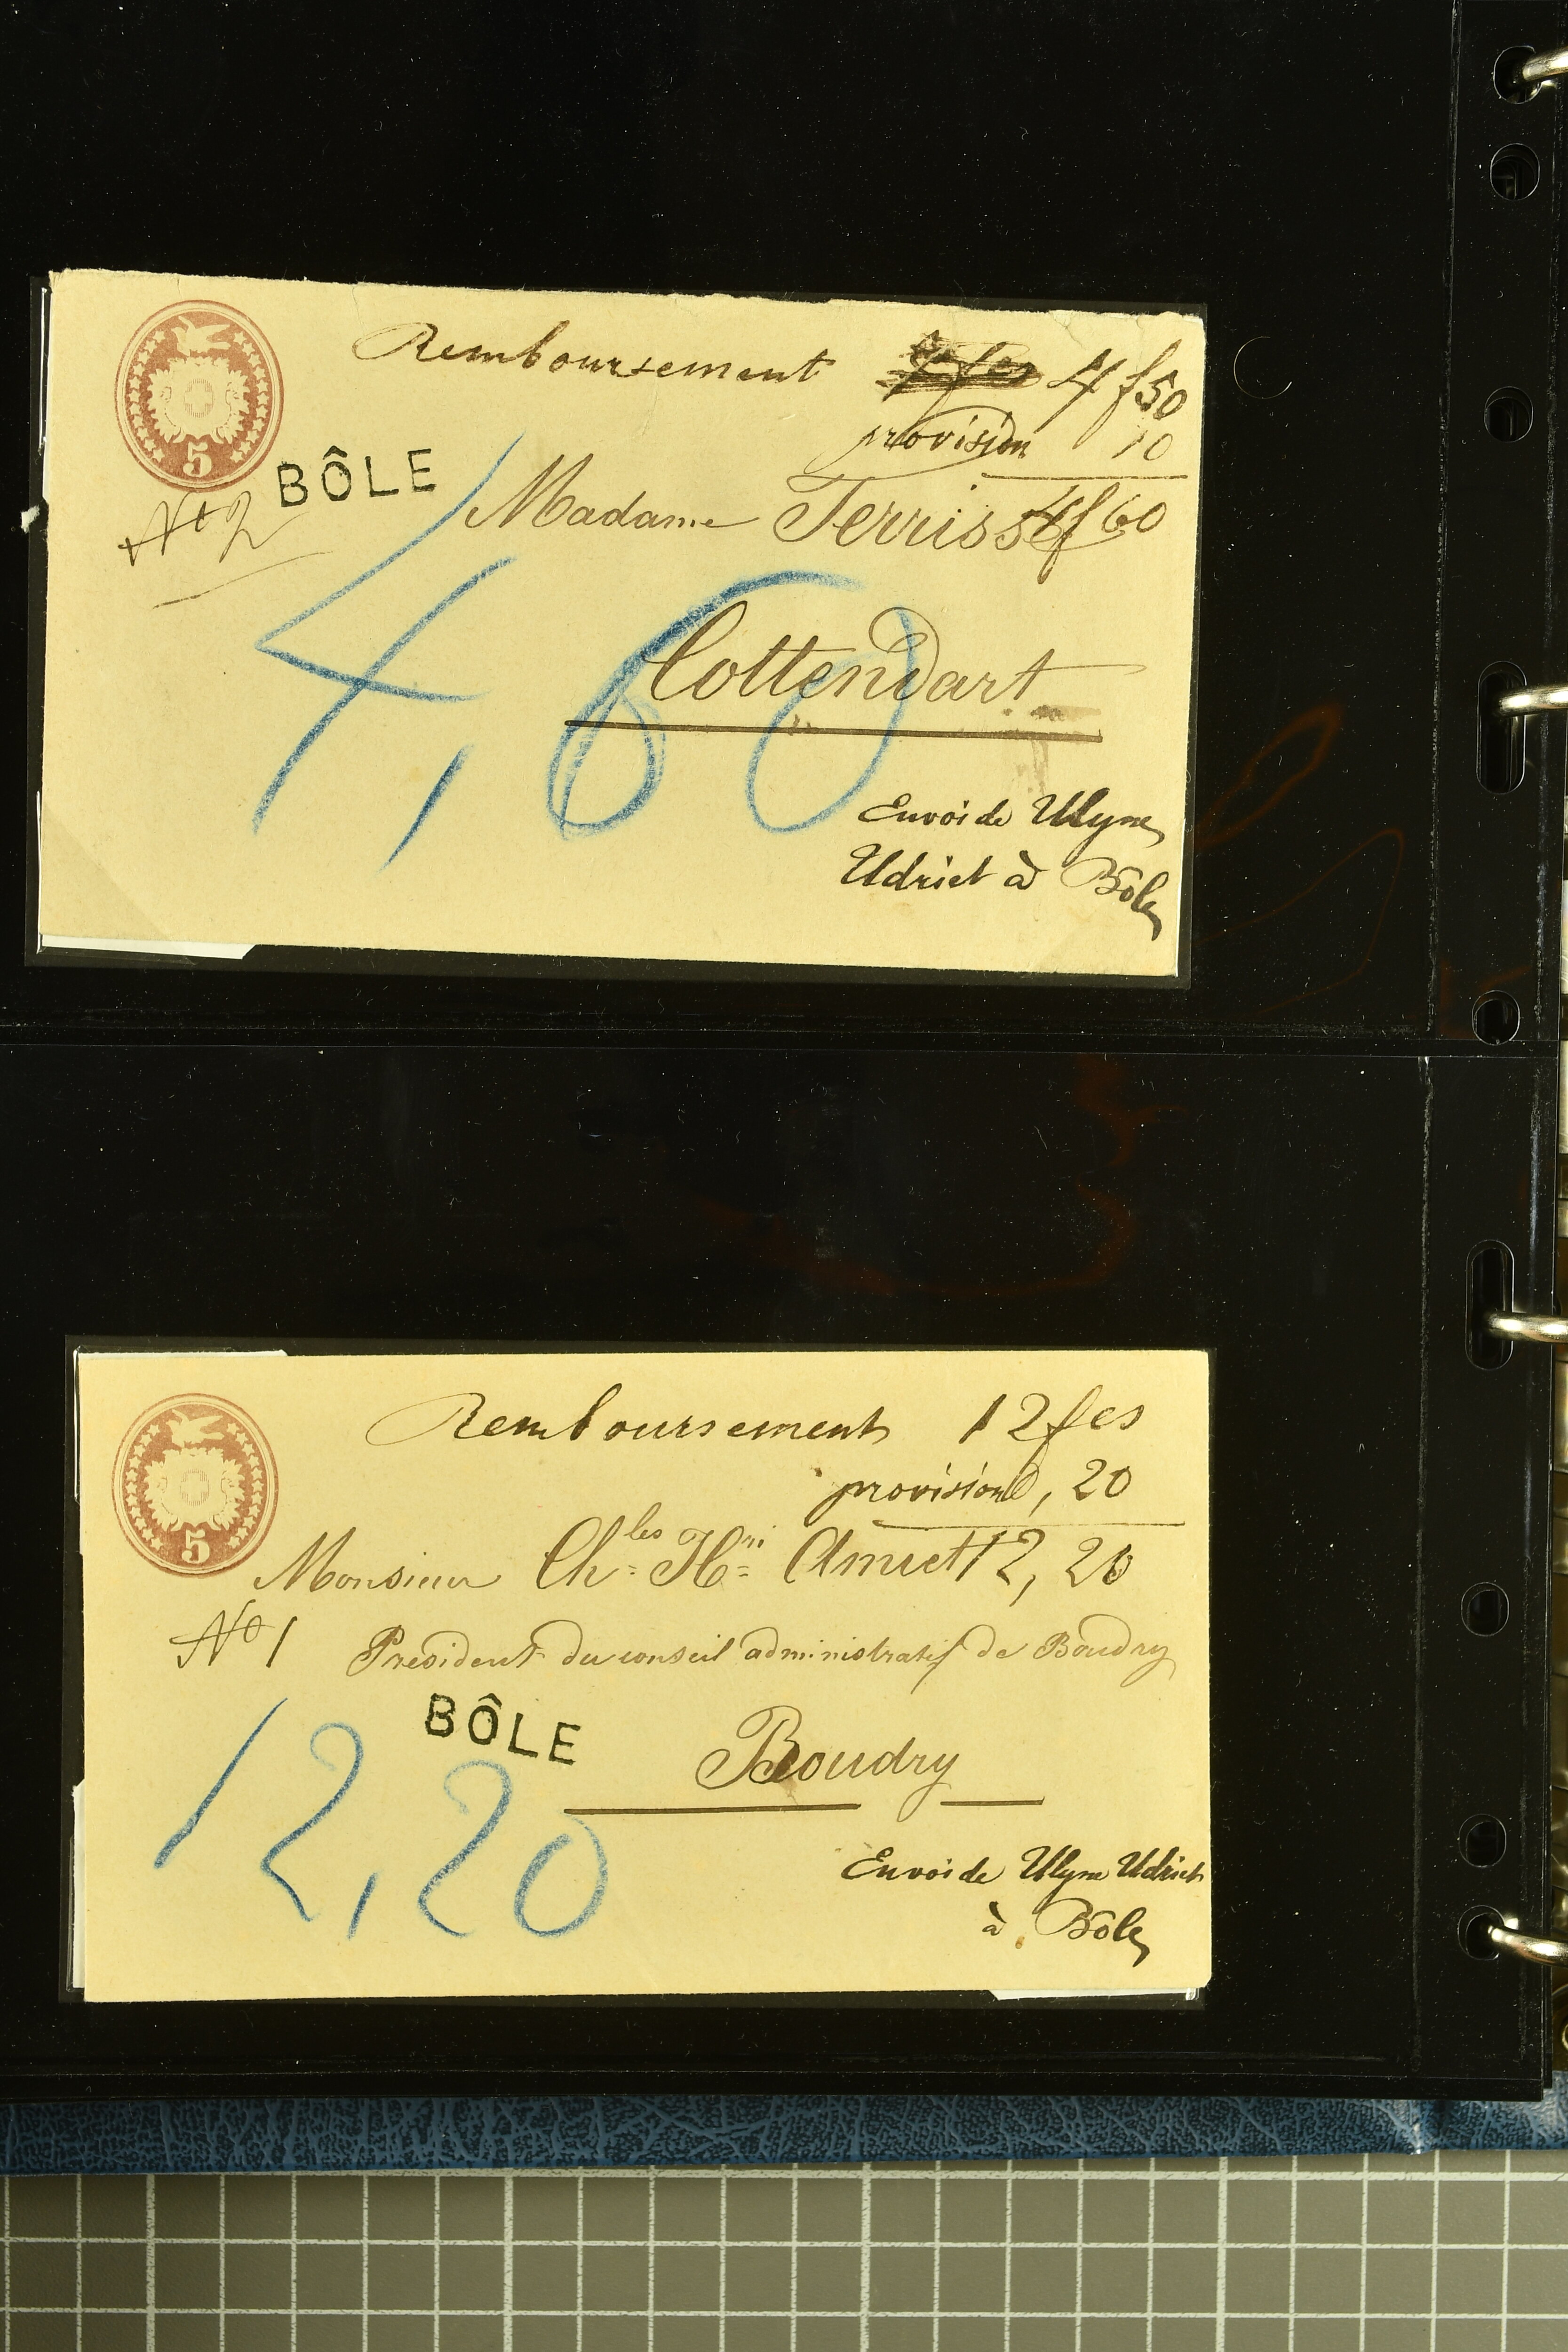 Remboursement 4 f 50
provision 10
5
BÔLE
No 2
Madame Terrisse 4f 60
4,60
Cottendart
Envoi de Ulysse
Udriet à Bôle
Remboursement 12 fcs
provision 0, 20
5
Monsieur Ch.les H.ri Amiet 12, 20
No 1 Président du conseil administratif de Boudry
BÔLE
Boudry
12,20
Envoi de Ulysse Udriet
à Bôle